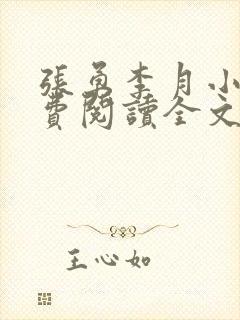 張勇李月小
費閱讀全文
王心如